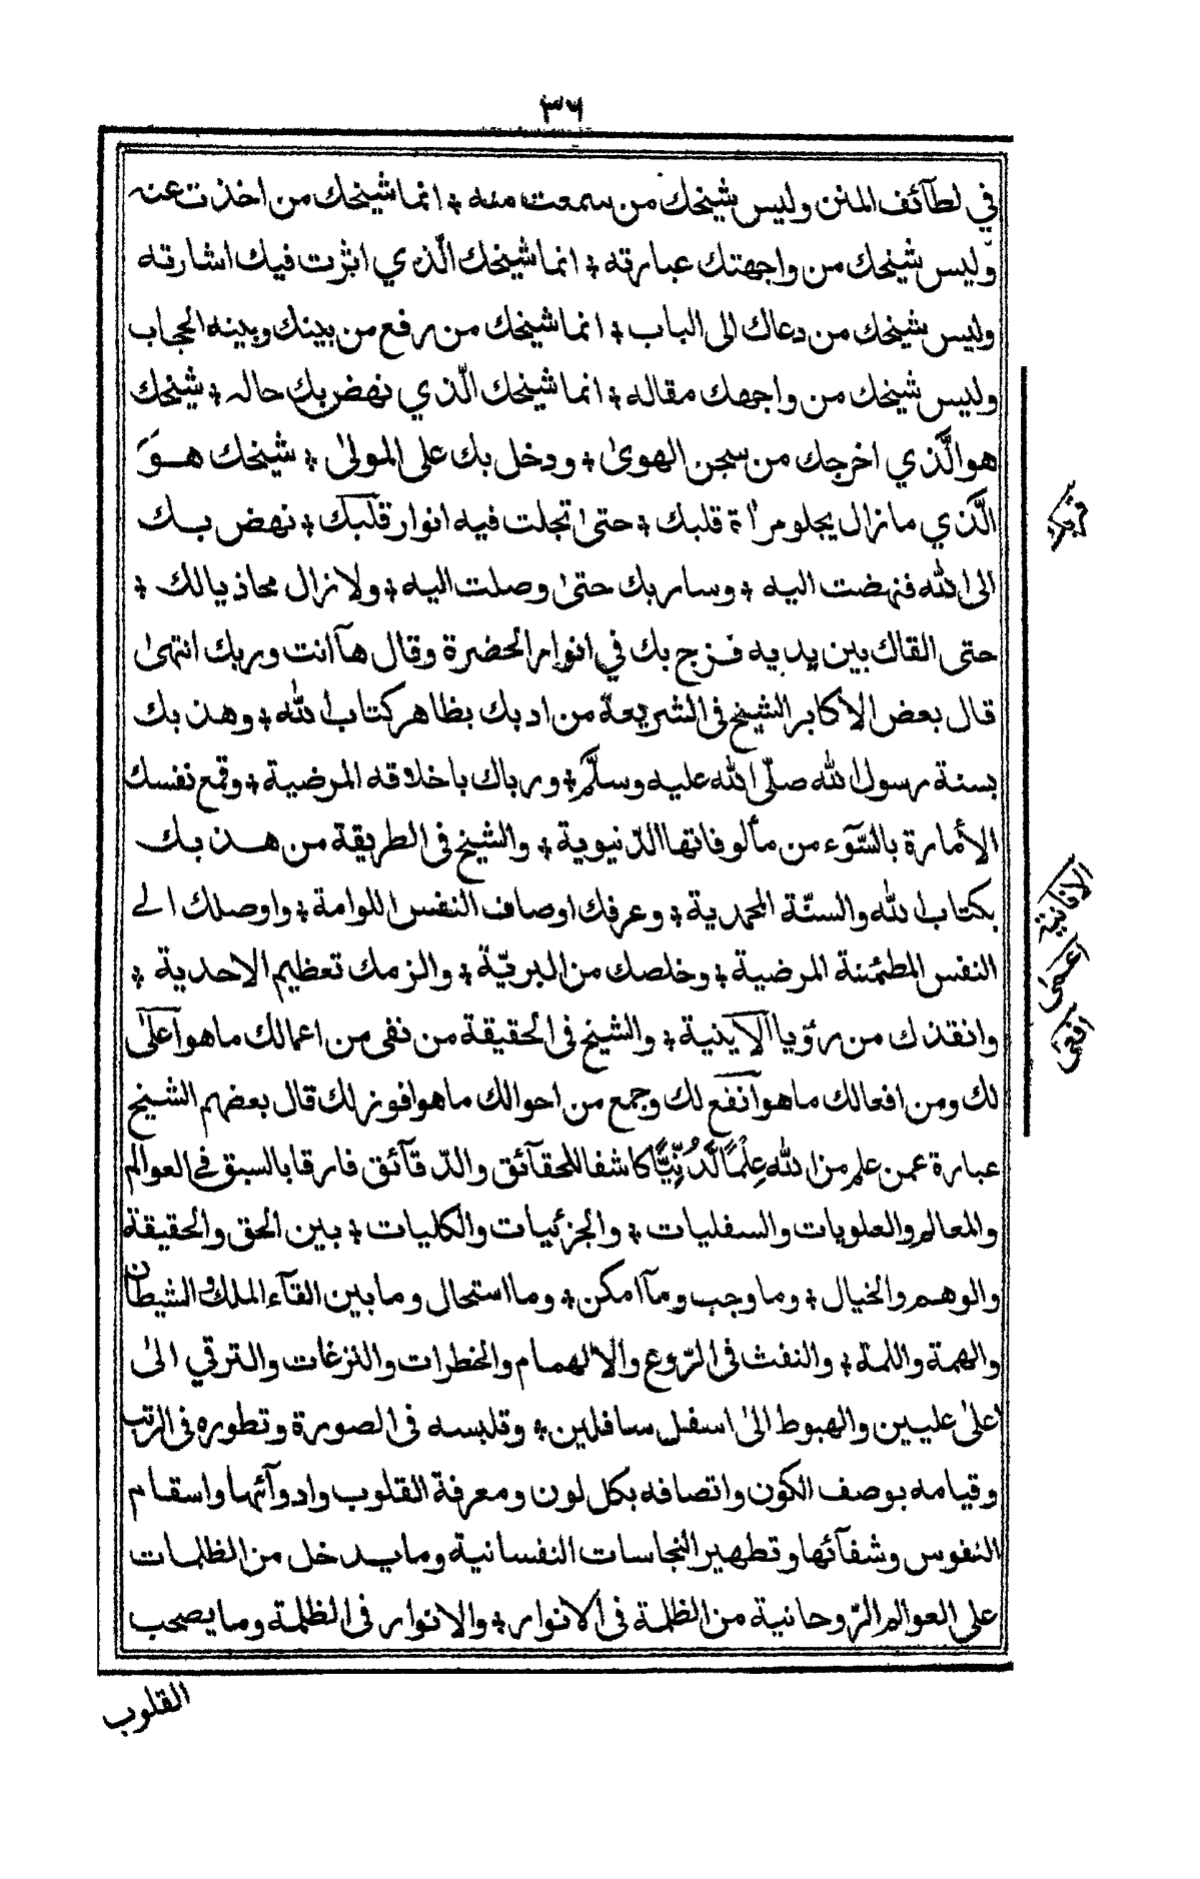 ٣٦
في لطآئف المنن وليس شيخك من سمعت منه ۞ انما شيخك من اخذت عنه
وليس شيخك من واجهتك عبارته ۞ انما شيخك الّذي اثرت فيك اشارته
وليس شيخك من دعاك الى الباب ۞ انما شيخك من رفع من بينك وبينه الحجاب
وليس شيخك من واجهك مقاله ۞ انما شيخك الّذي نهض بك حاله ۞ شيخك
هو الَّذي اخرجك من سجن الهوىٰ ۞ ودخل بك على المولىٰ ۞ شيخك هوَ
الَّذي ما زال يجلو مراٰة قلبك ۞ حتىٰ تجلت فيه انوار قلبك ۞ نهض بك
الى الله فنهضت اليه ۞ وسار بك حتىٰ وصلت اليه ۞ ولا زال محاذيا لك ۞
حتى القاك بين يديه فزج بك في انوار الحضرة وقال هآ انت وربك انتهىٰ
قال بعض الاكابر الشيخ فى الشريعة من ادبك بظاهر كتاب الله ۞ وهذبك
بسنة رسول الله صلّى الله عليه وسلّم ۞ ورباك باخلاقه المرضية ۞ وقمع نفسك
الأمارة بالسّوٓء من مألوفاتها الدّنيوية ۞ والشيخ فى الطريقة من هذبك
بكتاب الله والسنّة المحمدية ۞ وعرفك اوصاف النفس اللوامة ۞ واوصلك الى
النفس المطمئنة المرضية ۞ وخلصك من البريّة ۞ والزمك تعظيم الاحدية ۞
وانقذك من رؤيا الآينية ۞ والشيخ فى الحقيقة من نفى من اعمالك ما هو اعلىٰ
لك ومن افعالك ما هو انفع لك وجمع من احوالك ما هو افوز لك قال بعضهم الشيخ
عبارة عمن علم من الله عِلْمًا لَّدُنِّيًّا كاشفا للحقآئق والدّقآئق فارقا بالسبق فى العوالم
والمعالم والعلويات والسفليات ۞ والجزئيات والكليات ۞ بين الحق والحقيقة
والوهم والخيال ۞ وما وجب ومآ امكن ۞ وما استحال وما بين القآء الملك والشيطان
والهمة واللمة ۞ والنفث فى الرّوع والالهام والخطرات والنزغات والترقي الىٰ
اعلىٰ عليين والهبوط الىٰ اسفل سافلين ۞ وتلبسه فى الصورة وتطوره فى الرتب
وقيامه بوصف الكون واتصافه بكل لون ومعرفة القلوب وادوآئها واسقام
النفوس وشفآئها وتطهير النجاسات النفسانية وما يدخل من الظلمات
على العوالم الرّوحانية من الظلمة فى الانوار ۞ والانوار فى الظلمة وما يصحب
القلوب